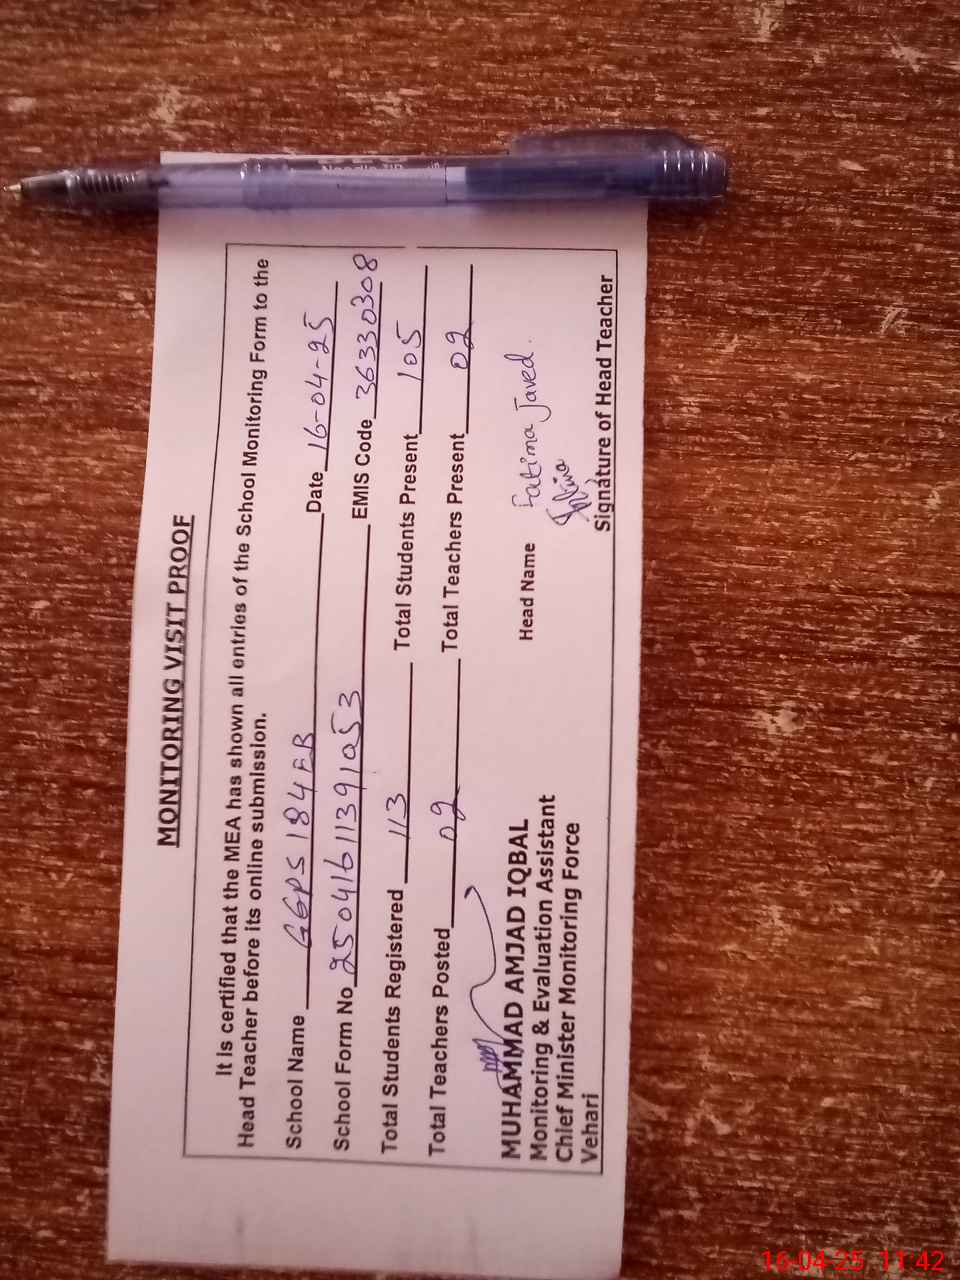 MONITORING VISIT PROOF
It is certified that the MEA has shown all entries of the School Monitoring Form to the
Head Teacher before its online submission.
School Name GGPS 184 EB Date 16-04-25
School Form No 25041611391053 EMIS Code 36330308
Total Students Registered 113 Total Students Present 105
Total Teachers Posted 02 Total Teachers Present 02
Head Name Fatima Javed.
MUHAMMAD AMJAD IQBAL
Monitoring & Evaluation Assistant
Chief Minister Monitoring Force
Vehari
Signature of Head Teacher
16-04-25 11:42